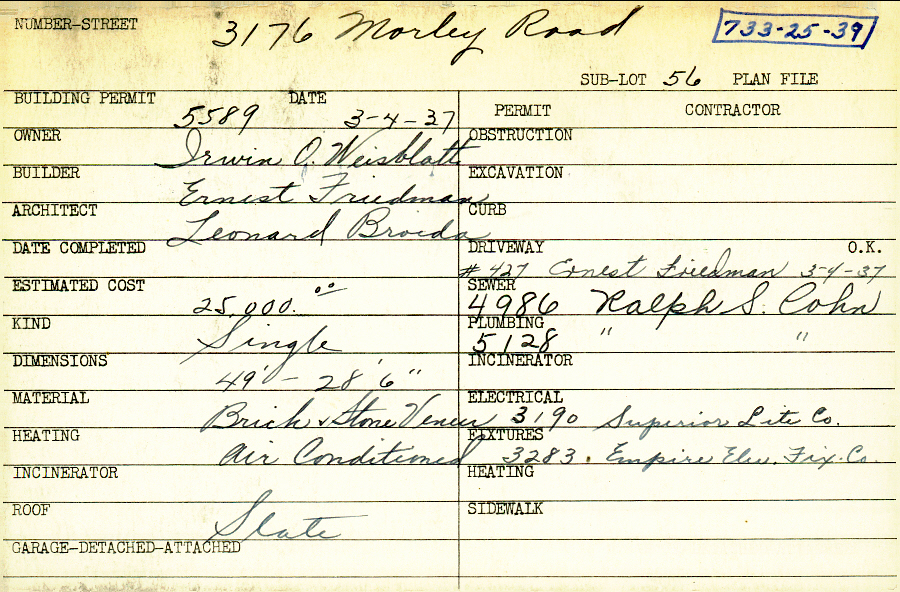 NUMBER-STREET 3176 Morley Road 733-25-39
SUB-LOT 56 PLAN FILE
BUILDING PERMIT 5589 DATE 3-4-37
PERMIT CONTRACTOR
OWNER Irwin O. Weisblatt
OBSTRUCTION
BUILDER Ernest Friedman
EXCAVATION
ARCHITECT Leonard Broida
CURB
DATE COMPLETED
DRIVEWAY O.K.
# 427 Ernest Friedman 3-4-37
ESTIMATED COST 25,000.00
SEWER 4986 Ralph S. Cohn
KIND Single
PLUMBING 5128 " "
DIMENSIONS 49' - 28' 6"
INCINERATOR
MATERIAL Brick & Stone Veneer
ELECTRICAL 3190 Superior Lite Co.
HEATING Air Conditioned
FIXTURES 3283. Empire Elec. Fix. Co.
INCINERATOR
HEATING
ROOF Slate
SIDEWALK
GARAGE-DETACHED-ATTACHED